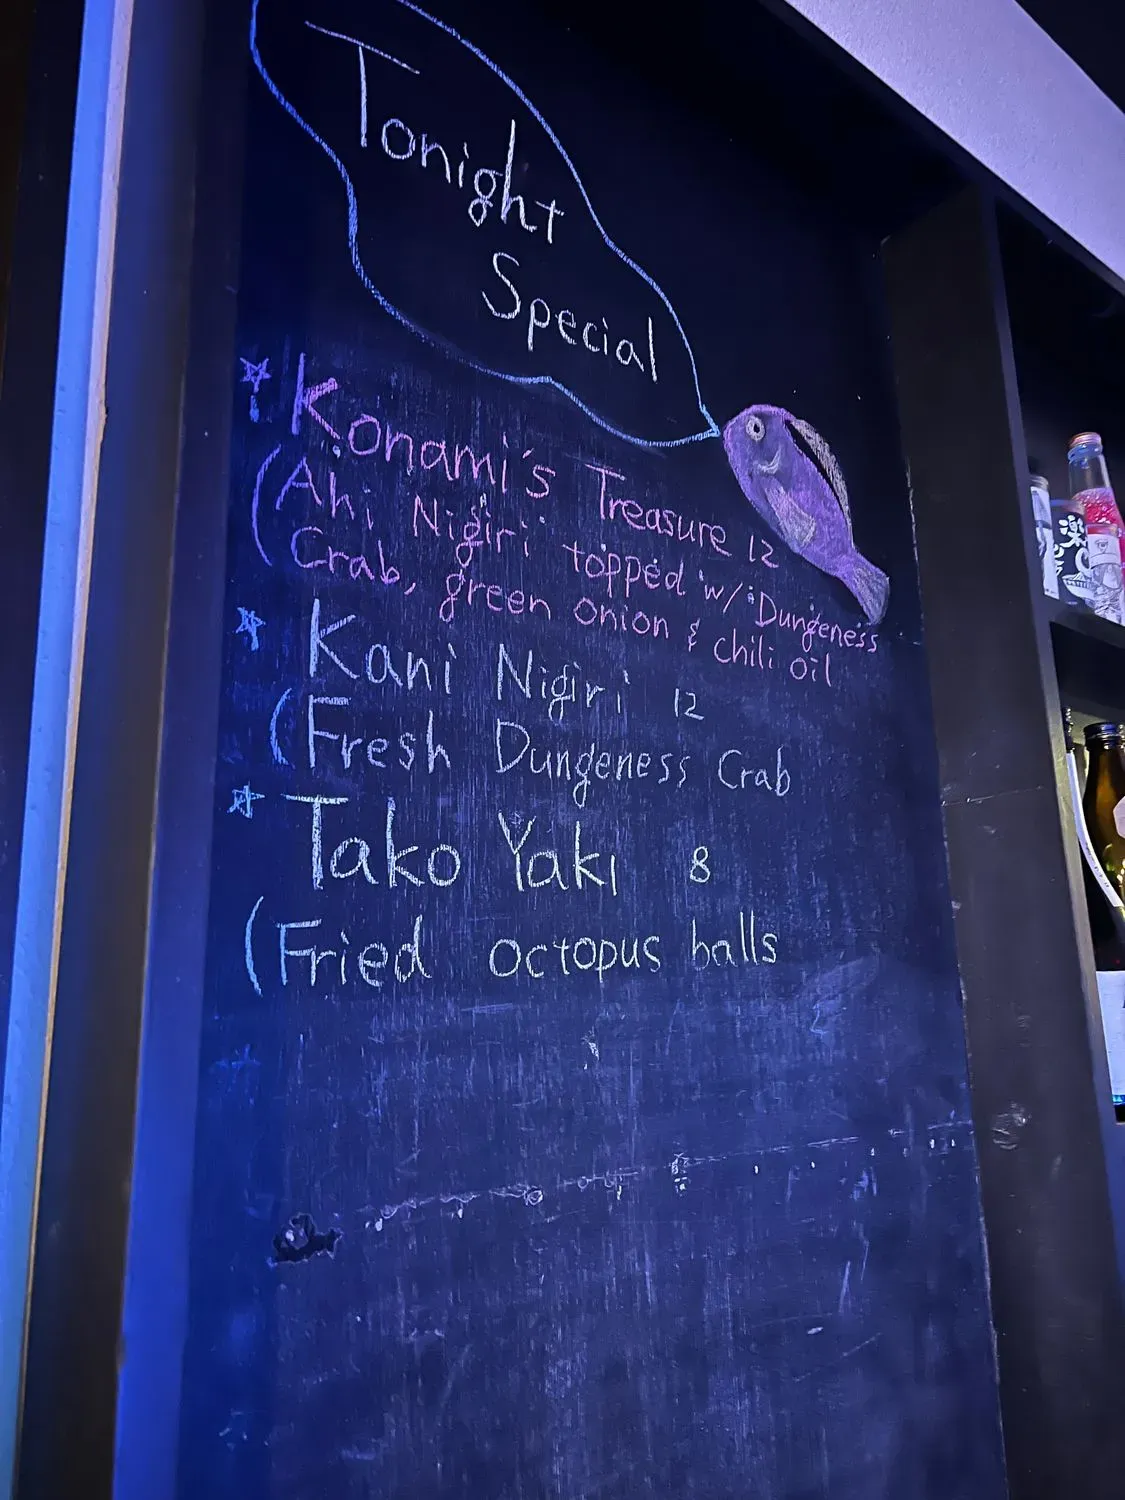 Tonight
Special
Konami's Treasure 12
(Ahi Nigiri topped w/ Dungeness
Crab, green onion & chili oil
Kani Nigiri 12
(Fresh Dungeness Crab
Tako Yaki 8
(Fried octopus balls